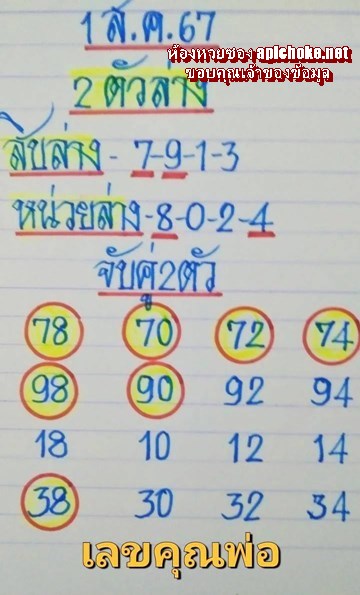 1 ส.ค.67
ห้องหวยซอง apichoke.net
ขอบคุณเจ้าของข้อมูล
2 ตัวล่าง
สิบล่าง - 7-9-1-3
หน่วยล่าง-8-0-2-4
จับคู่2ตัว
78 70 72 74
98 90 92 94
18 10 12 14
38 30 32 34
เลขคุณพ่อ